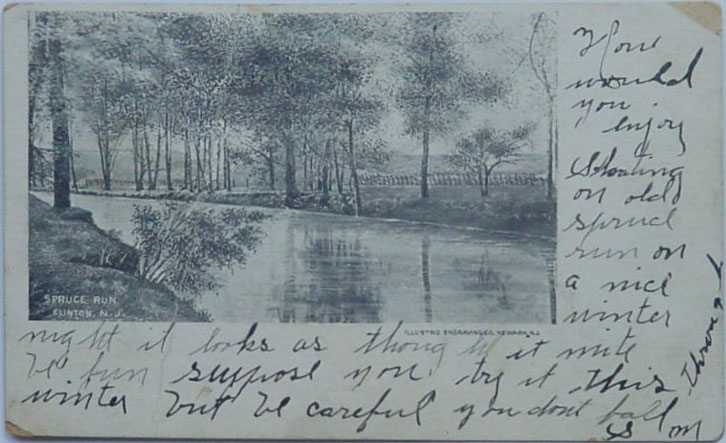 SPRUCE RUN
CLINTON, N.J.
ILLUSTRD ENGRAVING CO. NEWARK, N.J.
How
would
you
enjoy
Skating
on old
spruce
run on
a nice
winter
night it looks as though it mite
be fun suppose you try it this
winter but be careful you dont fall
through